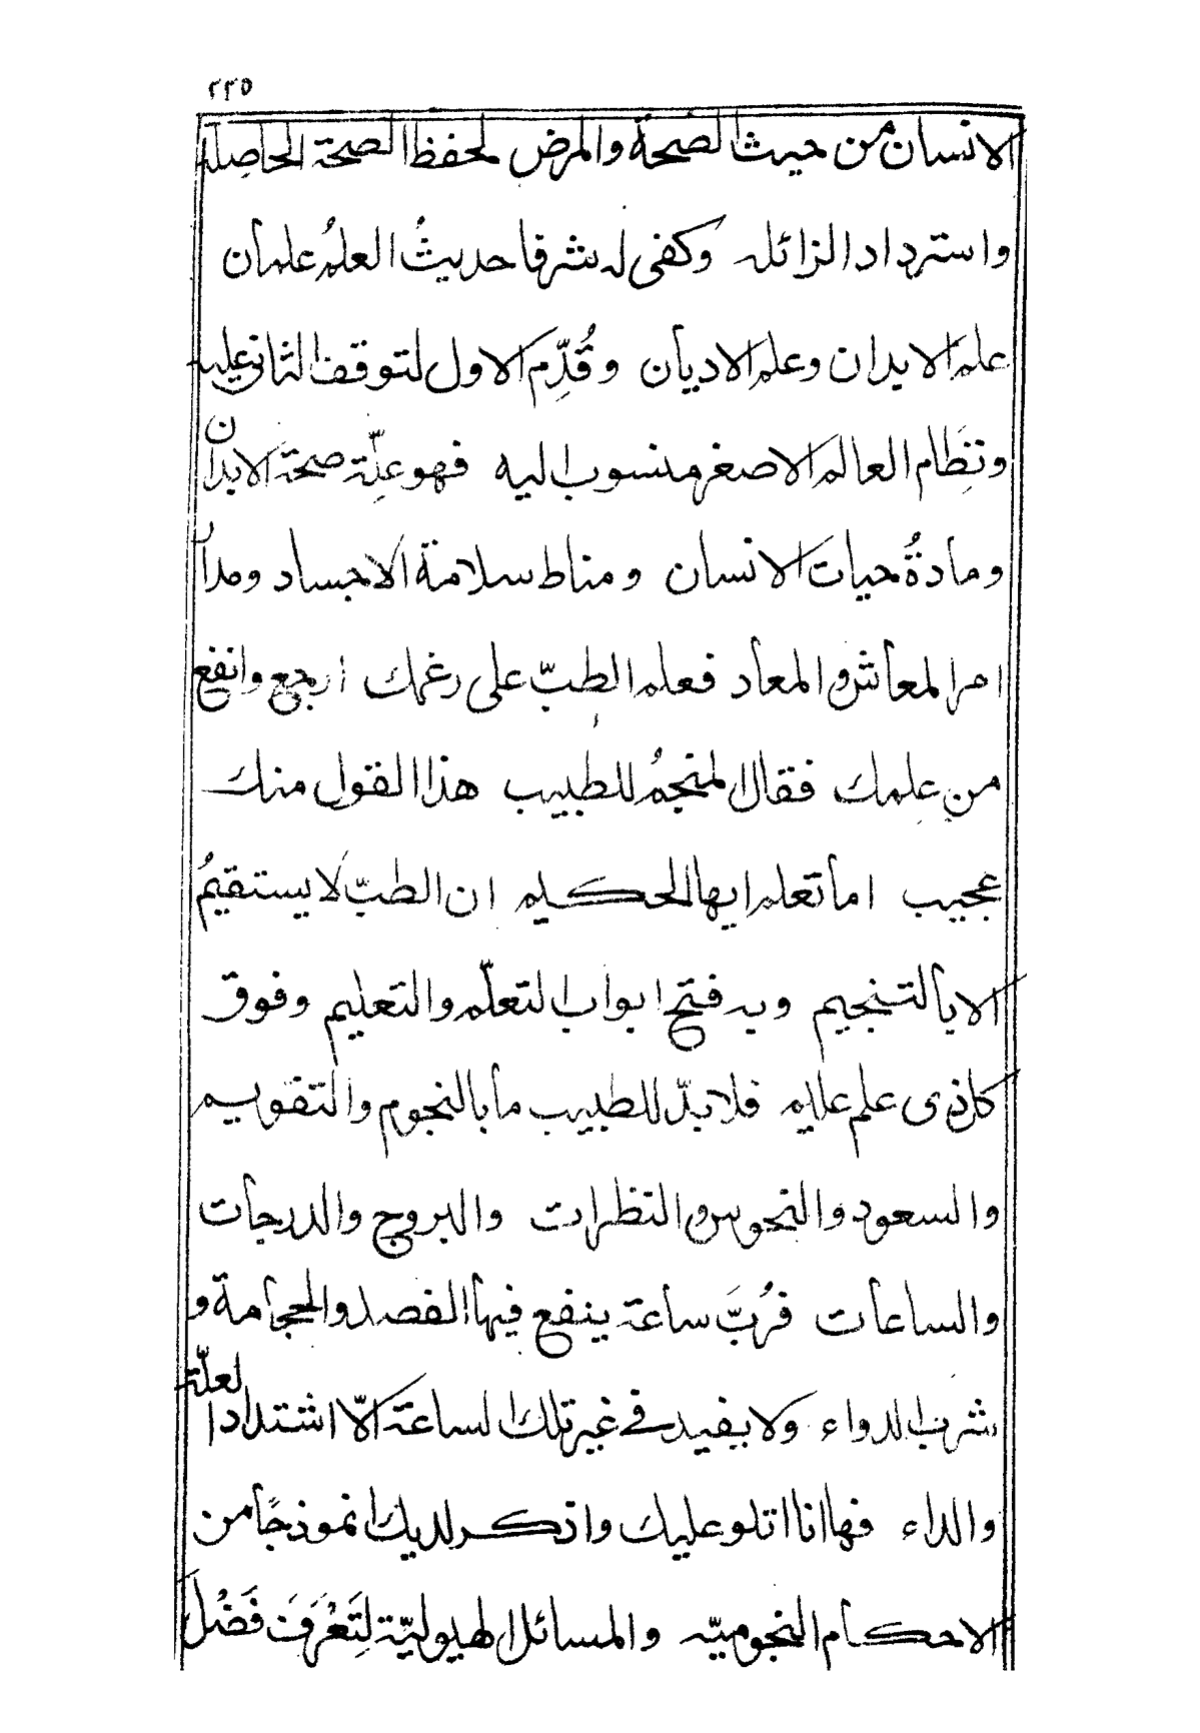 ٢٢٥
الانسان من حيث الصحة والمرض لحفظ الصحة الحاصلة
واسترداد الزائله وكفى له شرفا حديثُ العلمُ علمان
علم الابدان وعلم الاديان وقُدِّم الاول لتوقف الثانى عليه
ونِظَام العالم الاصغر منسوب اليه فهو عِلّة صحة الابدان
ومادةُ حيات الانسان ومناط سلامة الاجساد ومدارُ
امر المعاش والمعاد فعلم الطبّ على رغمك ارجع وانفع
من علمك فقال المنجمُ للطبيب هذا القول منك
عجيب اما تعلم ايها الحكيم ان الطبّ لا يستقيمُ
الا بالتنجيم وبه فتح ابواب التعلّم والتعليم وفوق
كل ذى علم عليم فلا بدّ للطبيب ما بالنجوم والتقويم
والسعود والنحوس والنظرات والبروج والدرجات
والساعات فرُبَّ ساعة ينفع فيها الفصد والحجامة و
شرب الدواء ولا يفيد فى غير تلك الساعة الّا اشتداد العلّة
والداء فها انا اتلو عليك واذكر لديك انموذجًا من
الاحكام النجوميّه والمسائل الهيوليّة لِتَعْرَفَ فَضْلَ